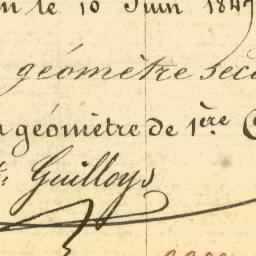 le 10 Juin 184
géomètre
géomètre de 1ère
Guilloys